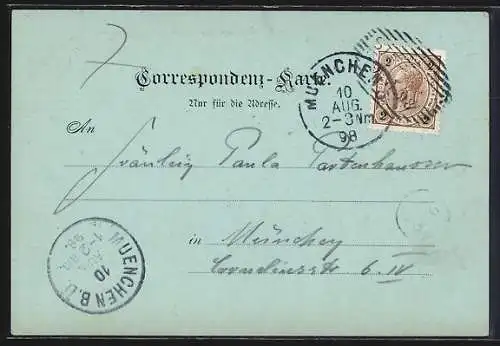 Correspondenz-Karte.
Nur für die Adresse.
MUENCHEN
10
AUG.
2-3 Nm
98
2 2
2 2
An
Fräulein Paula Partenhauser
in München
Corneliusstr 6 IV
MUENCHEN B.D.
10
AUG
98